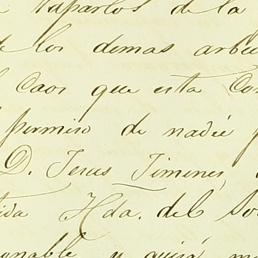 taparlos de la
de los demas arbo
caos que esta Con
permiso de nadie p
D. Jesus Jimenes,
ida Hda. del So
onable y quizá m